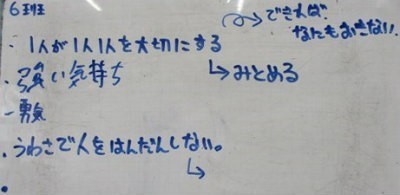 6班
できれば、
なにもおきない。
・1人が1人1人を大切にする
→みとめる
・強い気持ち
-勇気
・うわさで人をはんだんしない。